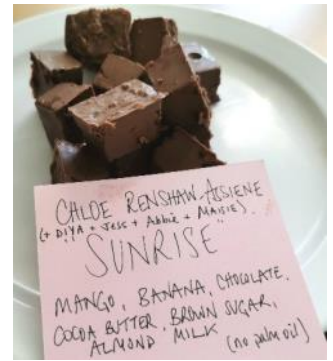 CHLOE RENSHAW-ASSIENE
(+ DIYA + Jess + Abbie + MAISIE).
"SUNRISE"
MANGO, BANANA, CHOCOLATE,
COCOA BUTTER, BROWN SUGAR,
ALMOND MILK (no palm oil)